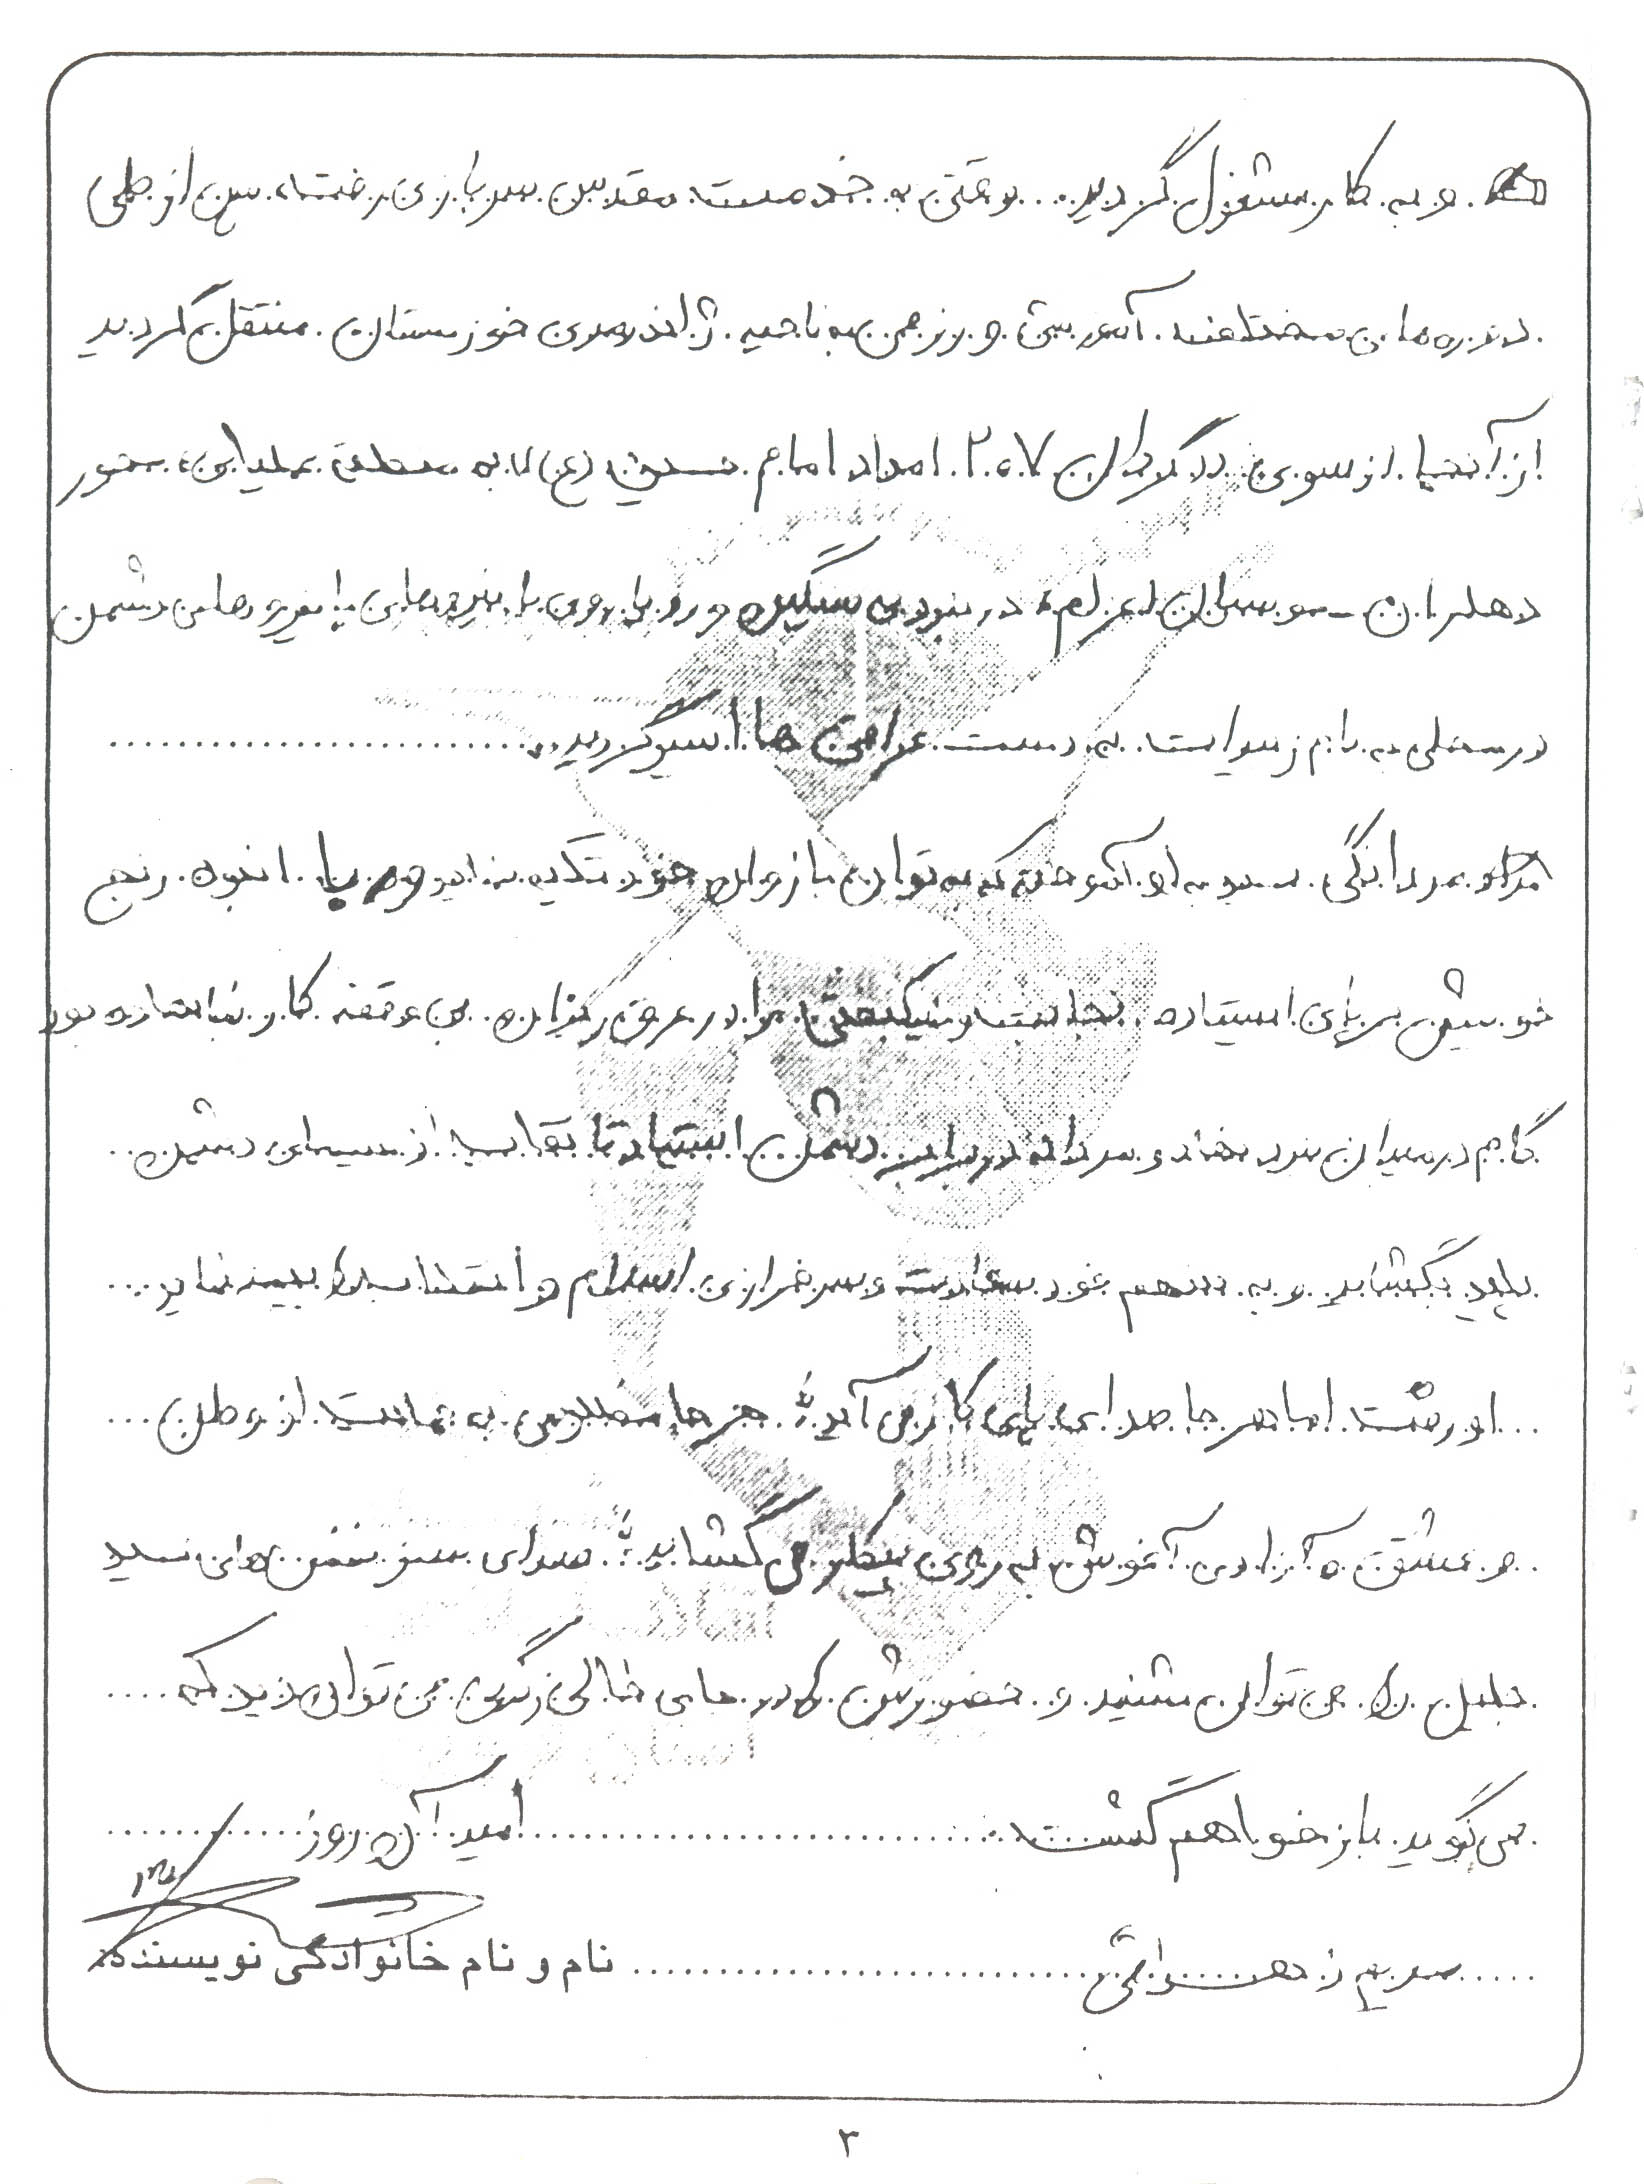 و به کار مشغول گردید... وقتی به خدمت مقدس سربازی رفت، پس از طی
دوره های مختلف آموزشی و رزمی به ناحیه ژاندارمری خوزستان منتقل گردید
از آنجا از سوی گردان ۲۰۷ امداد امام حسین (ع) به منطقه عملیاتی محور
دهلران - موسیان اعزام، در نبردی سنگین و رویارویی با نیروهای دشمن
در محلی به نام زبیدات به دست عراقی ها اسیر گردید..
مردانگی به او آموخت که به توان بازوان خود تکیه نماید و با انبوه رنج
خویش بر پای ایستاده نجابت و نیکبختی را در عرق ریزان بی وقفه کار نهاده بود
گام در میدان نبرد نهاد و مردانه در برابر دشمن ایستاد تا نقاب از سیمای دشمن..
پلید بگشاید و به سهم خود سعادت و سرفرازی اسلام و انقلاب را بیمه نماید...
... او رفت اما هر جا صدای پای کار می آید، هر جا به از وطن...
.. و عشق به آزادی آغوش به روی یکدیگر می گشاید، صدای سبز نفس های شهید
خلیل را می توان شنید و حضورش را در جای خالی زندگی می توان دید که....
می گوید باز خواهم گشت.. امید آن روز
مریم زهرائی نام و نام خانوادگی نویسنده:
۳